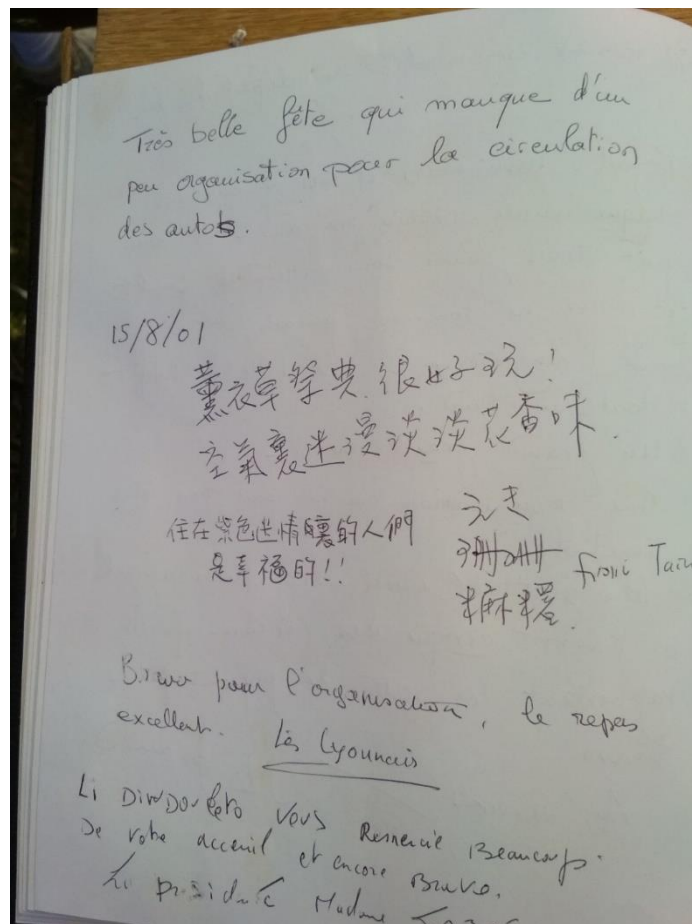 Très belle fête qui manque d'un
peu organisation pour la circulation
des autos.
15/8/01
薰衣草祭典很好玩!
空氣裏迷漫淡淡花香味.
住在紫色迷情裏的人們
是幸福的!!
from
Bravo pour l'organisation, le repas
excellent. Les Lyonnais
Li Vous Remercie Beaucoup.
De votre acceuil et encore Bravo.
Madame